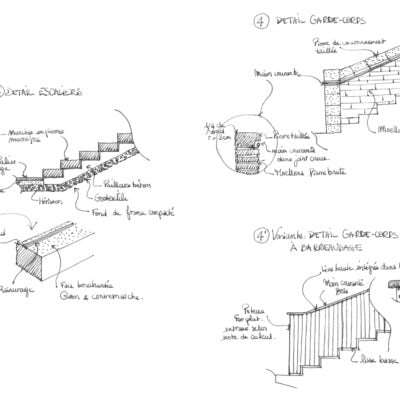 DETAIL ESCALIERS
Marches en pierres
massives
Paillasse béton
Géotextile
Hérisson
Fond de forme compacté
Rainurage
Face bouchardée
Giron & contremarche.
④ DETAIL GARDE-CORPS
Pierre de couronnement
taillée
Main courante
Pierre taillée
main courante
dans joint creux.
Moellons Pierre brute
④' Variante: DETAIL GARDE-CORPS
À BARREAUDAGE
Lisse haute intégrée dans
Main courante
bois
Poteau
Fer plat.
entraxe selon
note de calcul.
lisse basse